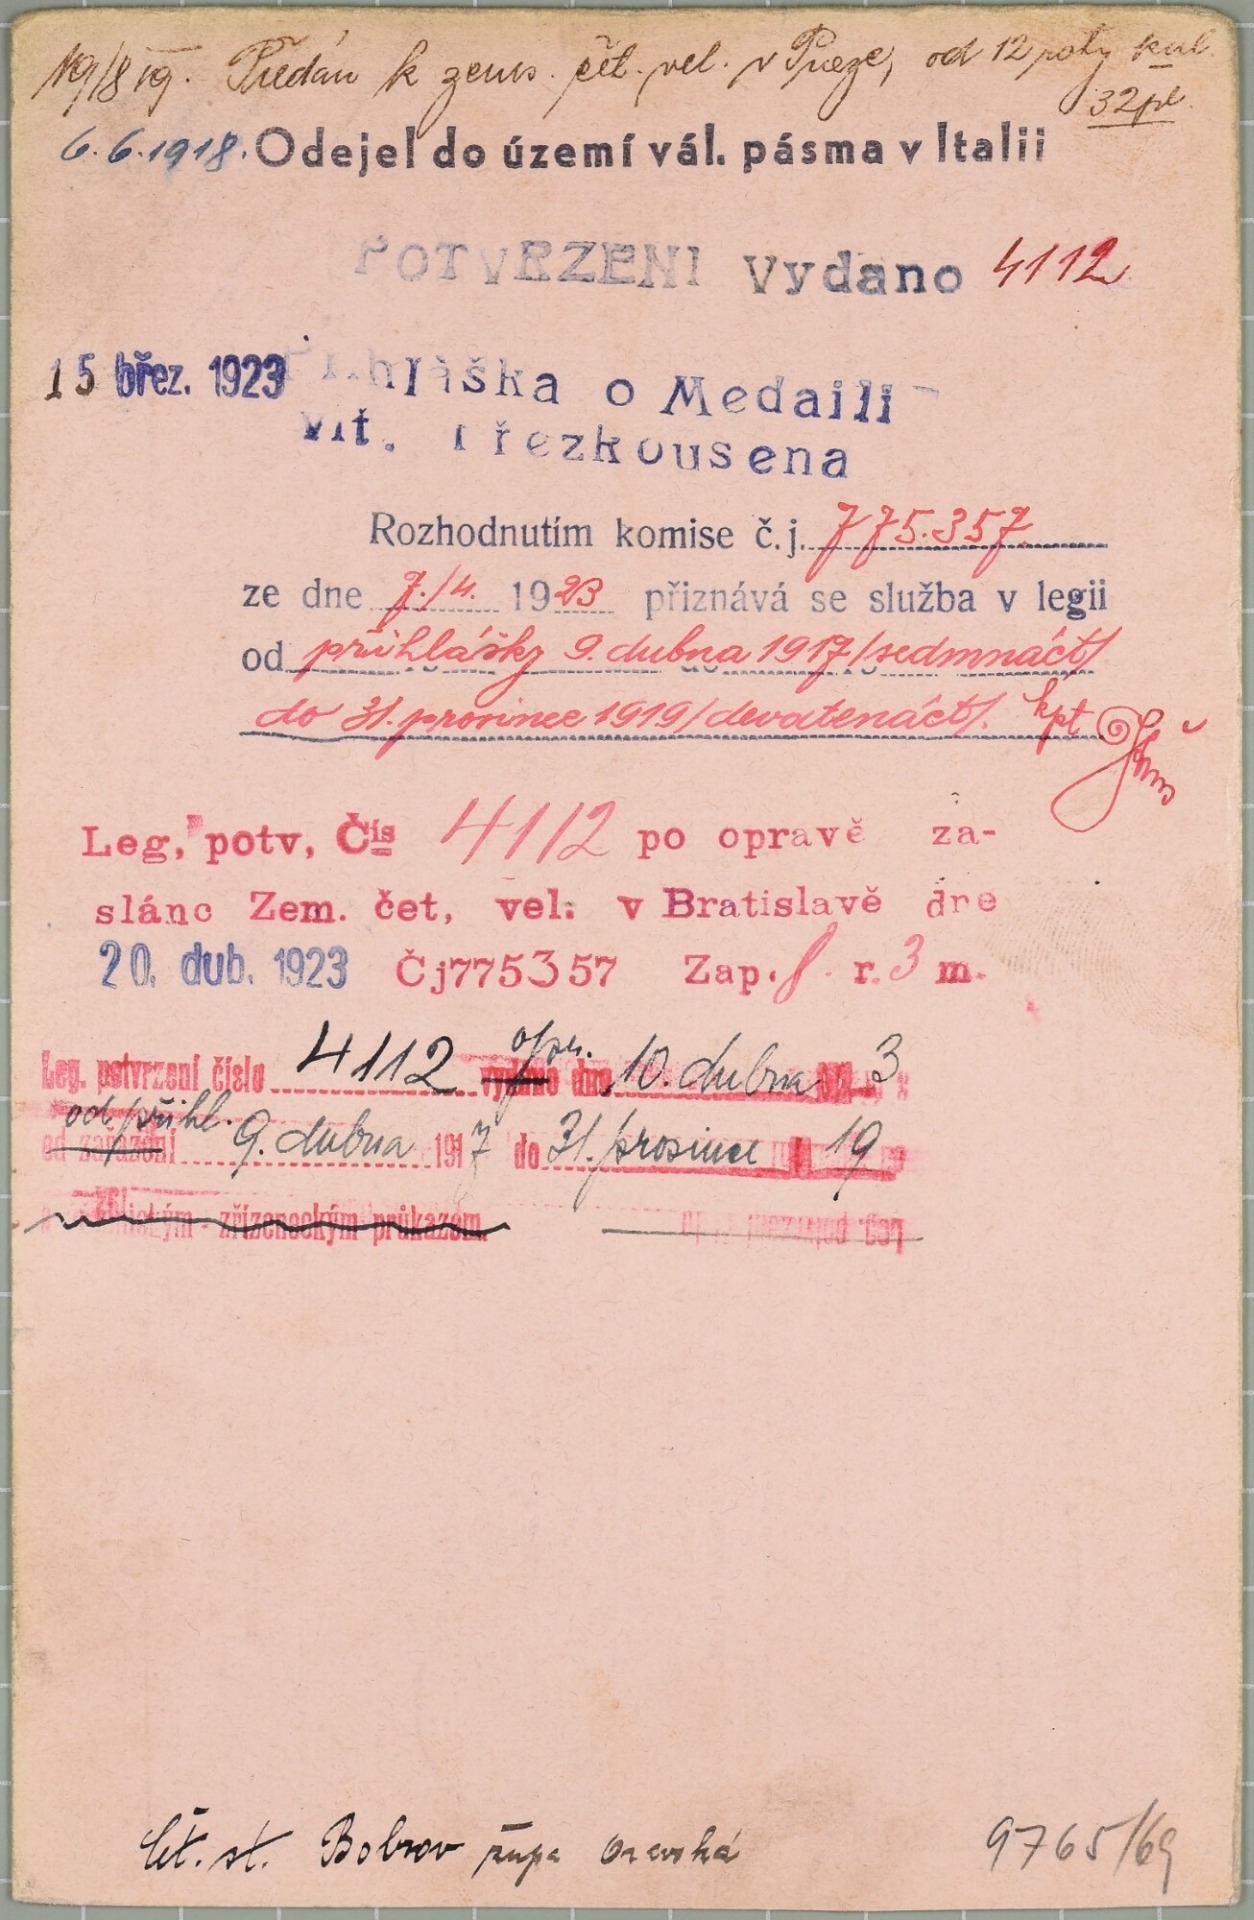 19/8 19. Předán k zems. čet. vel. v Praze, od 12 roty kul.
32 pl.
6.6.1918. Odejel do území vál. pásma v Italii
POTVRZENI Vydano 4112
15 břez. 1923 Přihláška o Medaili
Vít. Přezkousena
Rozhodnutím komise č.j. 775.357
ze dne 7./4. 1923 přiznává se služba v legii
od přihlášky 9. dubna 1917/sedmnáct/
do 31. prosince 1919/devatenáct/. kpt
Leg, potv, Čís 4112 po opravě za-
slánc Zem. čet, vel. v Bratislavě dne
20. dub. 1923 Čj775357 Zap. r. 3 m.
Leg. potvrzení číslo 4112 opr. vydáno dne 10. dubna 192 3
od přihl.
od zařazení 9. dubna 1917 do 31. prosince 19
zřízeneckým průkazem
Leg. potvrzení číslo
čet. st. Bobrov župa Oravská
9765/69